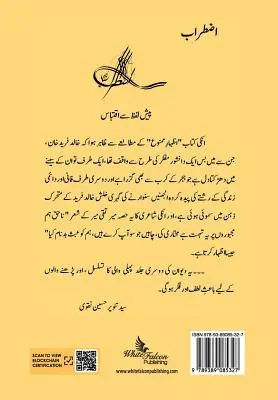 اضطراب
پیش لفظ سے اقتباس
انکی کتاب "اظہارِ ممنوع" کے مطالعے سے ظاہر ہوا کہ خالد فرید خان،
جن سے میں بس ایک دانشور مفکر کی طرح سے واقف تھا، ایک طرف تو ان کے سینے
میں دھڑکتا دل ہے جو ہجر کے کرب سے بھی گزرا ہے اور دوسری طرف فانی اور دائمی
زندگی کے رشتے کی پیدا کردہ الجھنیں سنوارنے کی گہری خلش خالد فرید کے متحرک
ذہن میں سموئی ہوئی ہے، اور انکی شاعری کا یہ حصہ میر تقی میر کے شعر "ناحق ہم
مجبوروں پر یہ تہمت ہے مختاری کی، چاہیں جو سو آپ کرے ہیں، ہم کو عبث بدنام کیا"
جیسا اظہار کرتا ہے۔
۔۔۔ یہ دیوان کی دوسری جلد پہلی والی کا تسلسل، اور پڑھنے والوں
کے لیے باعثِ لطف اور فکر ہوگی۔
سید تنویر حسین نقوی
SCAN TO VIEW
BLOCKCHAIN
CERTIFICATION
White Falcon
Publishing
www.whitefalconpublishing.com
ISBN 978-93-89085-32-7
9 789389 085327